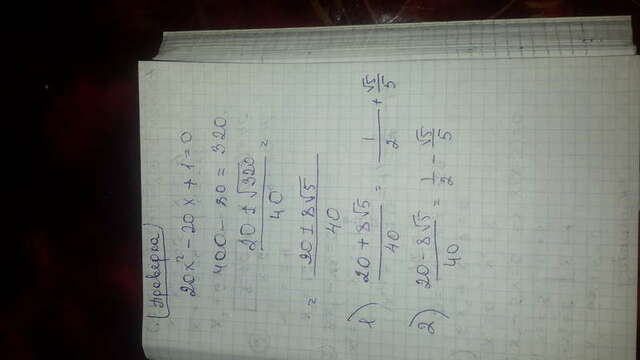 Проверка
20x² - 20x + 1 = 0
400 - 80 = 320.
20 ± √320 / 40 =
= 20 ± 8√5 / 40
1) 20 + 8√5 / 40 = 1/2 + √5/5
2) 20 - 8√5 / 40 = 1/2 - √5/5